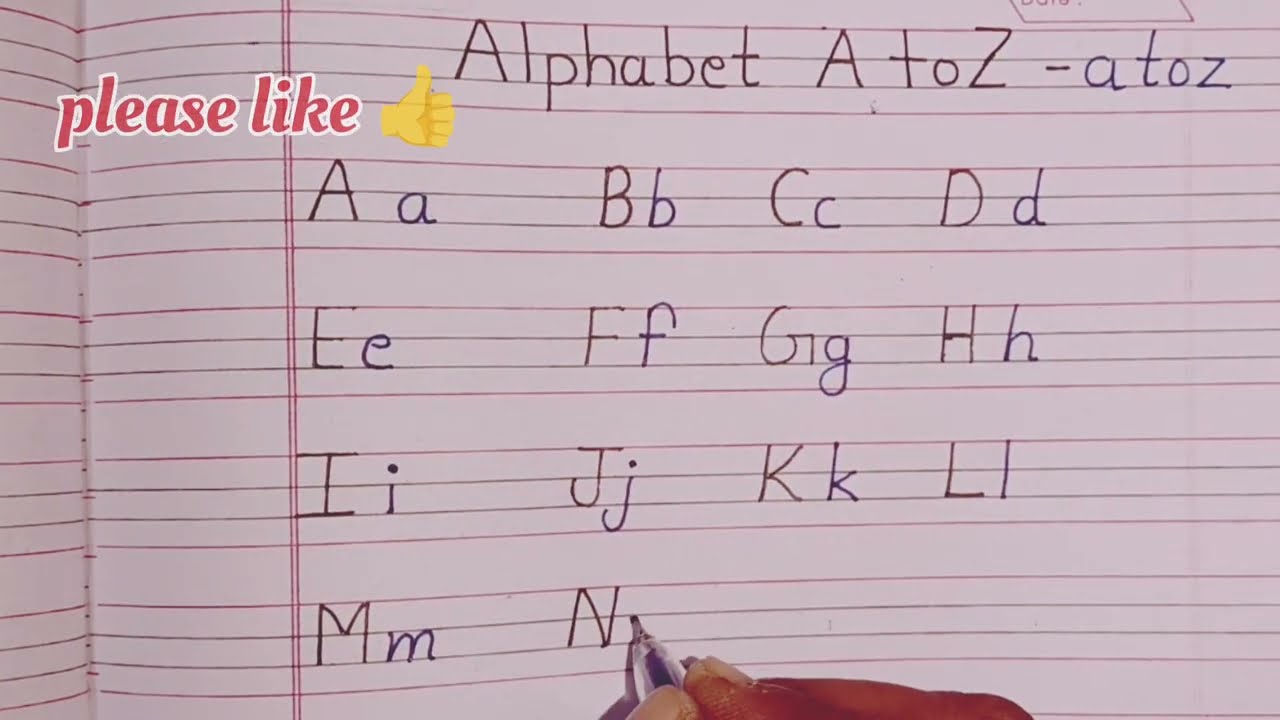 Alphabet A to Z - a to z
please like 👍
A a B b C c D d
E e F f G g H h
I i J j K k L l
M m N